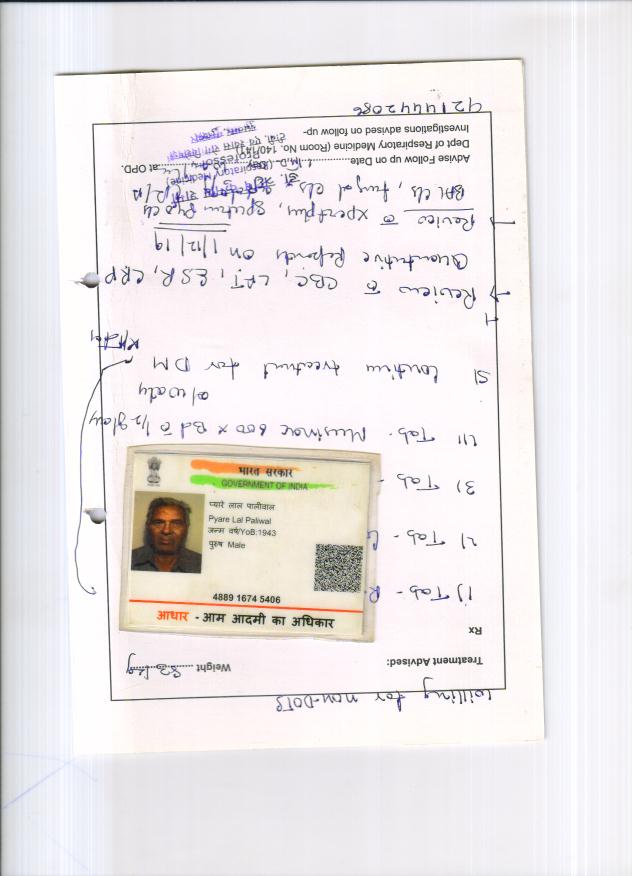 willing for non-DOTS
Treatment Advised:
Weight
Rx
1) Tab - R
2) Tab - G
3) Tab -
4) Tab - Musinac 600 x Bd
1/2 glass
o/ water
5) Continue treatment for DM
→ Review CBC, LFT, ESR, CRP
Quantative Reports on 1/12/19
→ Review Xpertplus, Sputum Pyo c/s
BAL c/s, fungal c/s
Advise Follow up on Date at OPD.
Dept of Respiratory Medicine (Room No. 140/141)
Investigations advised on follow up-
9214442086
भारत सरकार
GOVERNMENT OF INDIA
प्यारे लाल पालीवाल
Pyare Lal Paliwal
जन्म वर्ष/YoB:1943
पुरुष Male
4889 1674 5406
आधार - आम आदमी का अधिकार